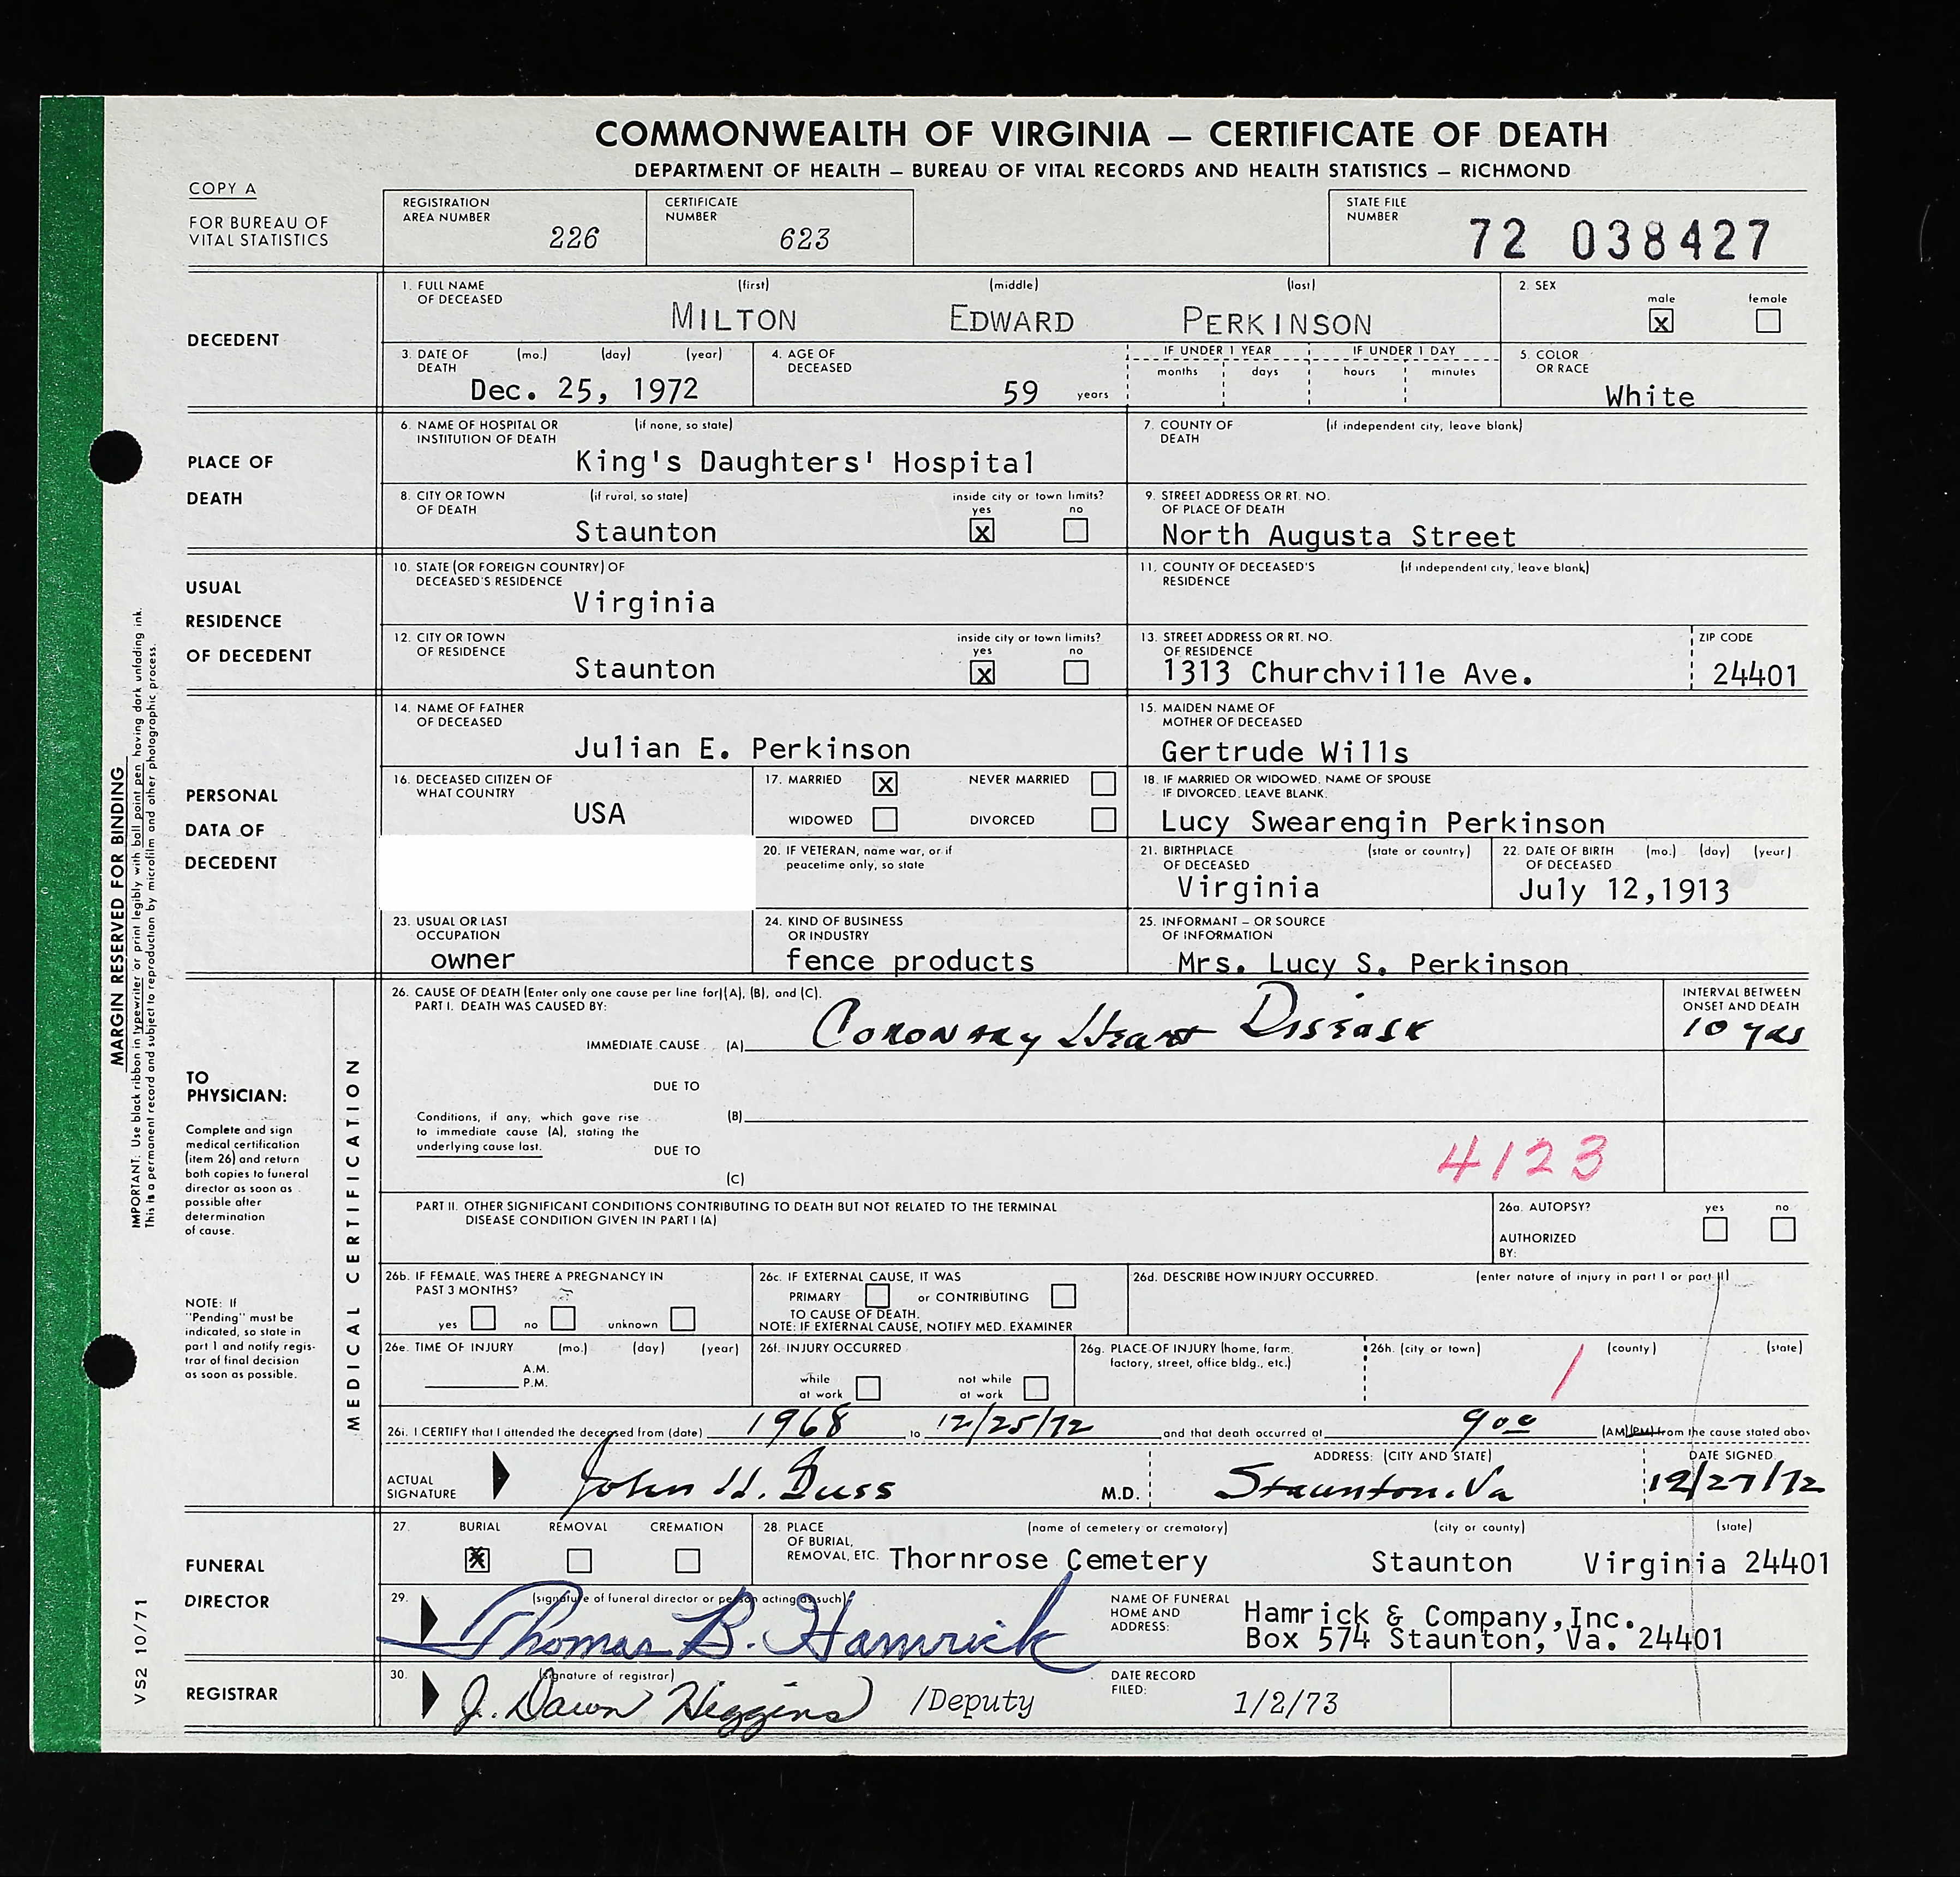 COMMONWEALTH OF VIRGINIA — CERTIFICATE OF DEATH
DEPARTMENT OF HEALTH — BUREAU OF VITAL RECORDS AND HEALTH STATISTICS — RICHMOND
COPY A
FOR BUREAU OF
VITAL STATISTICS
REGISTRATION
AREA NUMBER
226
CERTIFICATE
NUMBER
623
STATE FILE
NUMBER
72 038427
DECEDENT
1. FULL NAME
OF DECEASED
(first) (middle) (last)
MILTON EDWARD PERKINSON
2. SEX
male female
x
3. DATE OF
DEATH
(mo.) (day) (year)
Dec. 25, 1972
4. AGE OF
DECEASED
59 years
IF UNDER 1 YEAR IF UNDER 1 DAY
months days hours minutes
5. COLOR
OR RACE
White
PLACE OF
DEATH
6. NAME OF HOSPITAL OR
INSTITUTION OF DEATH
(if none, so state)
King's Daughters' Hospital
7. COUNTY OF
DEATH
(if independent city, leave blank)
8. CITY OR TOWN
OF DEATH
(if rural, so state)
Staunton
inside city or town limits?
yes no
x
9. STREET ADDRESS OR RT. NO.
OF PLACE OF DEATH
North Augusta Street
USUAL
RESIDENCE
OF DECEDENT
10. STATE (OR FOREIGN COUNTRY) OF
DECEASED'S RESIDENCE
Virginia
11. COUNTY OF DECEASED'S
RESIDENCE
(if independent city, leave blank)
12. CITY OR TOWN
OF RESIDENCE
Staunton
inside city or town limits?
yes no
x
13. STREET ADDRESS OR RT. NO.
OF RESIDENCE
1313 Churchville Ave.
ZIP CODE
24401
PERSONAL
DATA OF
DECEDENT
14. NAME OF FATHER
OF DECEASED
Julian E. Perkinson
15. MAIDEN NAME OF
MOTHER OF DECEASED
Gertrude Wills
16. DECEASED CITIZEN OF
WHAT COUNTRY
USA
17. MARRIED X NEVER MARRIED
WIDOWED DIVORCED
18. IF MARRIED OR WIDOWED, NAME OF SPOUSE
IF DIVORCED, LEAVE BLANK.
Lucy Swearengin Perkinson
20. IF VETERAN, name war, or if
peacetime only, so state
21. BIRTHPLACE
OF DECEASED
(state or country)
Virginia
22. DATE OF BIRTH
OF DECEASED
(mo.) (day) (year)
July 12,1913
23. USUAL OR LAST
OCCUPATION
owner
24. KIND OF BUSINESS
OR INDUSTRY
fence products
25. INFORMANT — OR SOURCE
OF INFORMATION
Mrs. Lucy S. Perkinson
TO
PHYSICIAN:
Complete and sign
medical certification
(item 26) and return
both copies to funeral
director as soon as
possible after
determination
of cause.
NOTE: If
"Pending" must be
indicated, so state in
part 1 and notify regis-
trar of final decision
as soon as possible.
MEDICAL CERTIFICATION
26. CAUSE OF DEATH (Enter only one cause per line for (A), (B), and (C).
PART I. DEATH WAS CAUSED BY:
IMMEDIATE CAUSE (A) Coronary Heart Disease
INTERVAL BETWEEN
ONSET AND DEATH
10 yrs
DUE TO
Conditions, if any, which gave rise
to immediate cause (A), stating the
underlying cause last.
(B)
DUE TO
(C)
4123
PART II. OTHER SIGNIFICANT CONDITIONS CONTRIBUTING TO DEATH BUT NOT RELATED TO THE TERMINAL
DISEASE CONDITION GIVEN IN PART I (A)
26a. AUTOPSY? yes no
AUTHORIZED
BY:
26b. IF FEMALE, WAS THERE A PREGNANCY IN
PAST 3 MONTHS?
yes no unknown
26c. IF EXTERNAL CAUSE, IT WAS
PRIMARY or CONTRIBUTING
TO CAUSE OF DEATH.
NOTE: IF EXTERNAL CAUSE, NOTIFY MED. EXAMINER
26d. DESCRIBE HOW INJURY OCCURRED. (enter nature of injury in part I or part II)
26e. TIME OF INJURY (mo.) (day) (year)
A.M.
P.M.
26f. INJURY OCCURRED
while
at work
not while
at work
26g. PLACE OF INJURY (home, farm,
factory, street, office bldg., etc.)
26h. (city or town) (county) (state)
1
26i. I CERTIFY that I attended the deceased from (date) 1968 to 12/25/72 and that death occurred at 9 00 (AM) (PM) from the cause stated abov
ACTUAL
SIGNATURE
John H. Guss M.D.
ADDRESS: (CITY AND STATE)
Staunton, Va
DATE SIGNED
12/27/72
FUNERAL
DIRECTOR
27. BURIAL REMOVAL CREMATION
X
28. PLACE
OF BURIAL,
REMOVAL, ETC.
(name of cemetery or crematory) (city or county) (state)
Thornrose Cemetery Staunton Virginia 24401
29. (signature of funeral director or person acting as such)
Thomas B. Hamrick
NAME OF FUNERAL
HOME AND
ADDRESS:
Hamrick & Company,Inc.
Box 574 Staunton, Va. 24401
REGISTRAR
30. (signature of registrar)
J. Dawn Higgins /Deputy
DATE RECORD
FILED:
1/2/73
MARGIN RESERVED FOR BINDING
IMPORTANT: Use black ribbon in typewriter or print legibly with ball point pen having dark unfading ink.
This is a permanent record and subject to reproduction by microfilm and other photographic process.
VS2 10/71